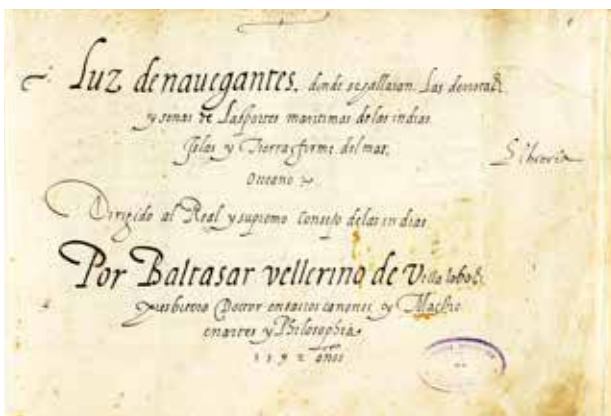 Luz de nauegantes. donde se hallaran las derrotas
y señas de las partes maritimas de las indias
Islas y Tierra firme del mar.
Occeano
Dirigido al Real y supremo Consejo de las indias
Por Baltasar vellerino de Villalobos
presbitero Doctor en sacros canones y Maestro
en artes y Philosophia
1592 años